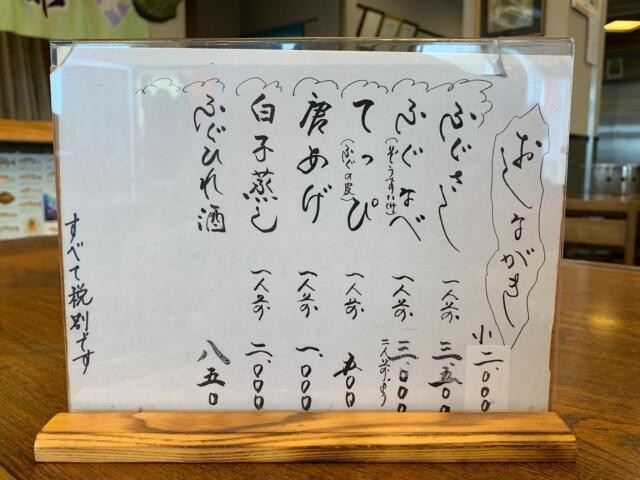 おしながき
小 二、000
ふぐさし 一人前 三、五00
ふぐなべ 一人前 三、000
(ぞうすい付)
二人前より
てっぴ 一人前 五00
(ふぐの皮)
唐あげ 一人前 一、000
白子蒸し 一人前 二、000
ふぐひれ酒 八五0
すべて税別です